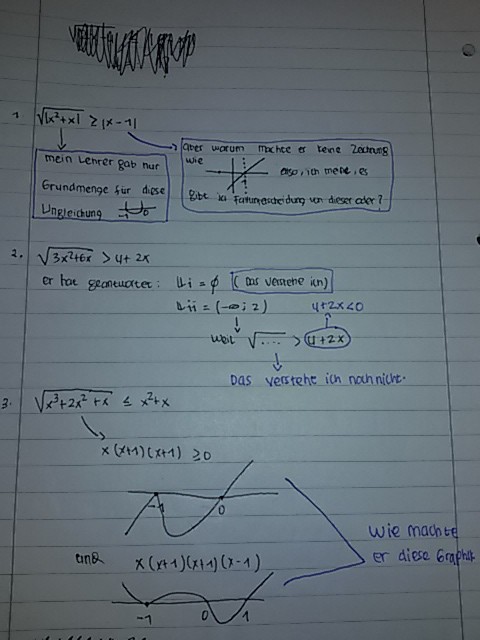 1. √|x²+x| ≥ |x-1|
mein Lehrer gab nur
Grundmenge für diese
Ungleichung -1 0
aber warum machte er keine Zeichnung
wie 1 also, ich meine, es
gibt ja Fallunterscheidung von dieser oder?
2. √3x²+6x > 4+2x
er hat geantwortet: 𝕃i = ∅ (Das verstehe ich)
𝕃ii = (-∞; 2) 4+2x<0
weil √.... > 4+2x
Das verstehe ich noch nicht.
3. √x³+2x²+x ≤ x²+x
x(x+1)(x+1) ≥ 0
-1 0
x(x+1)(x+1)(x-1)
-1 0 1
Wie machte
er diese Graphik